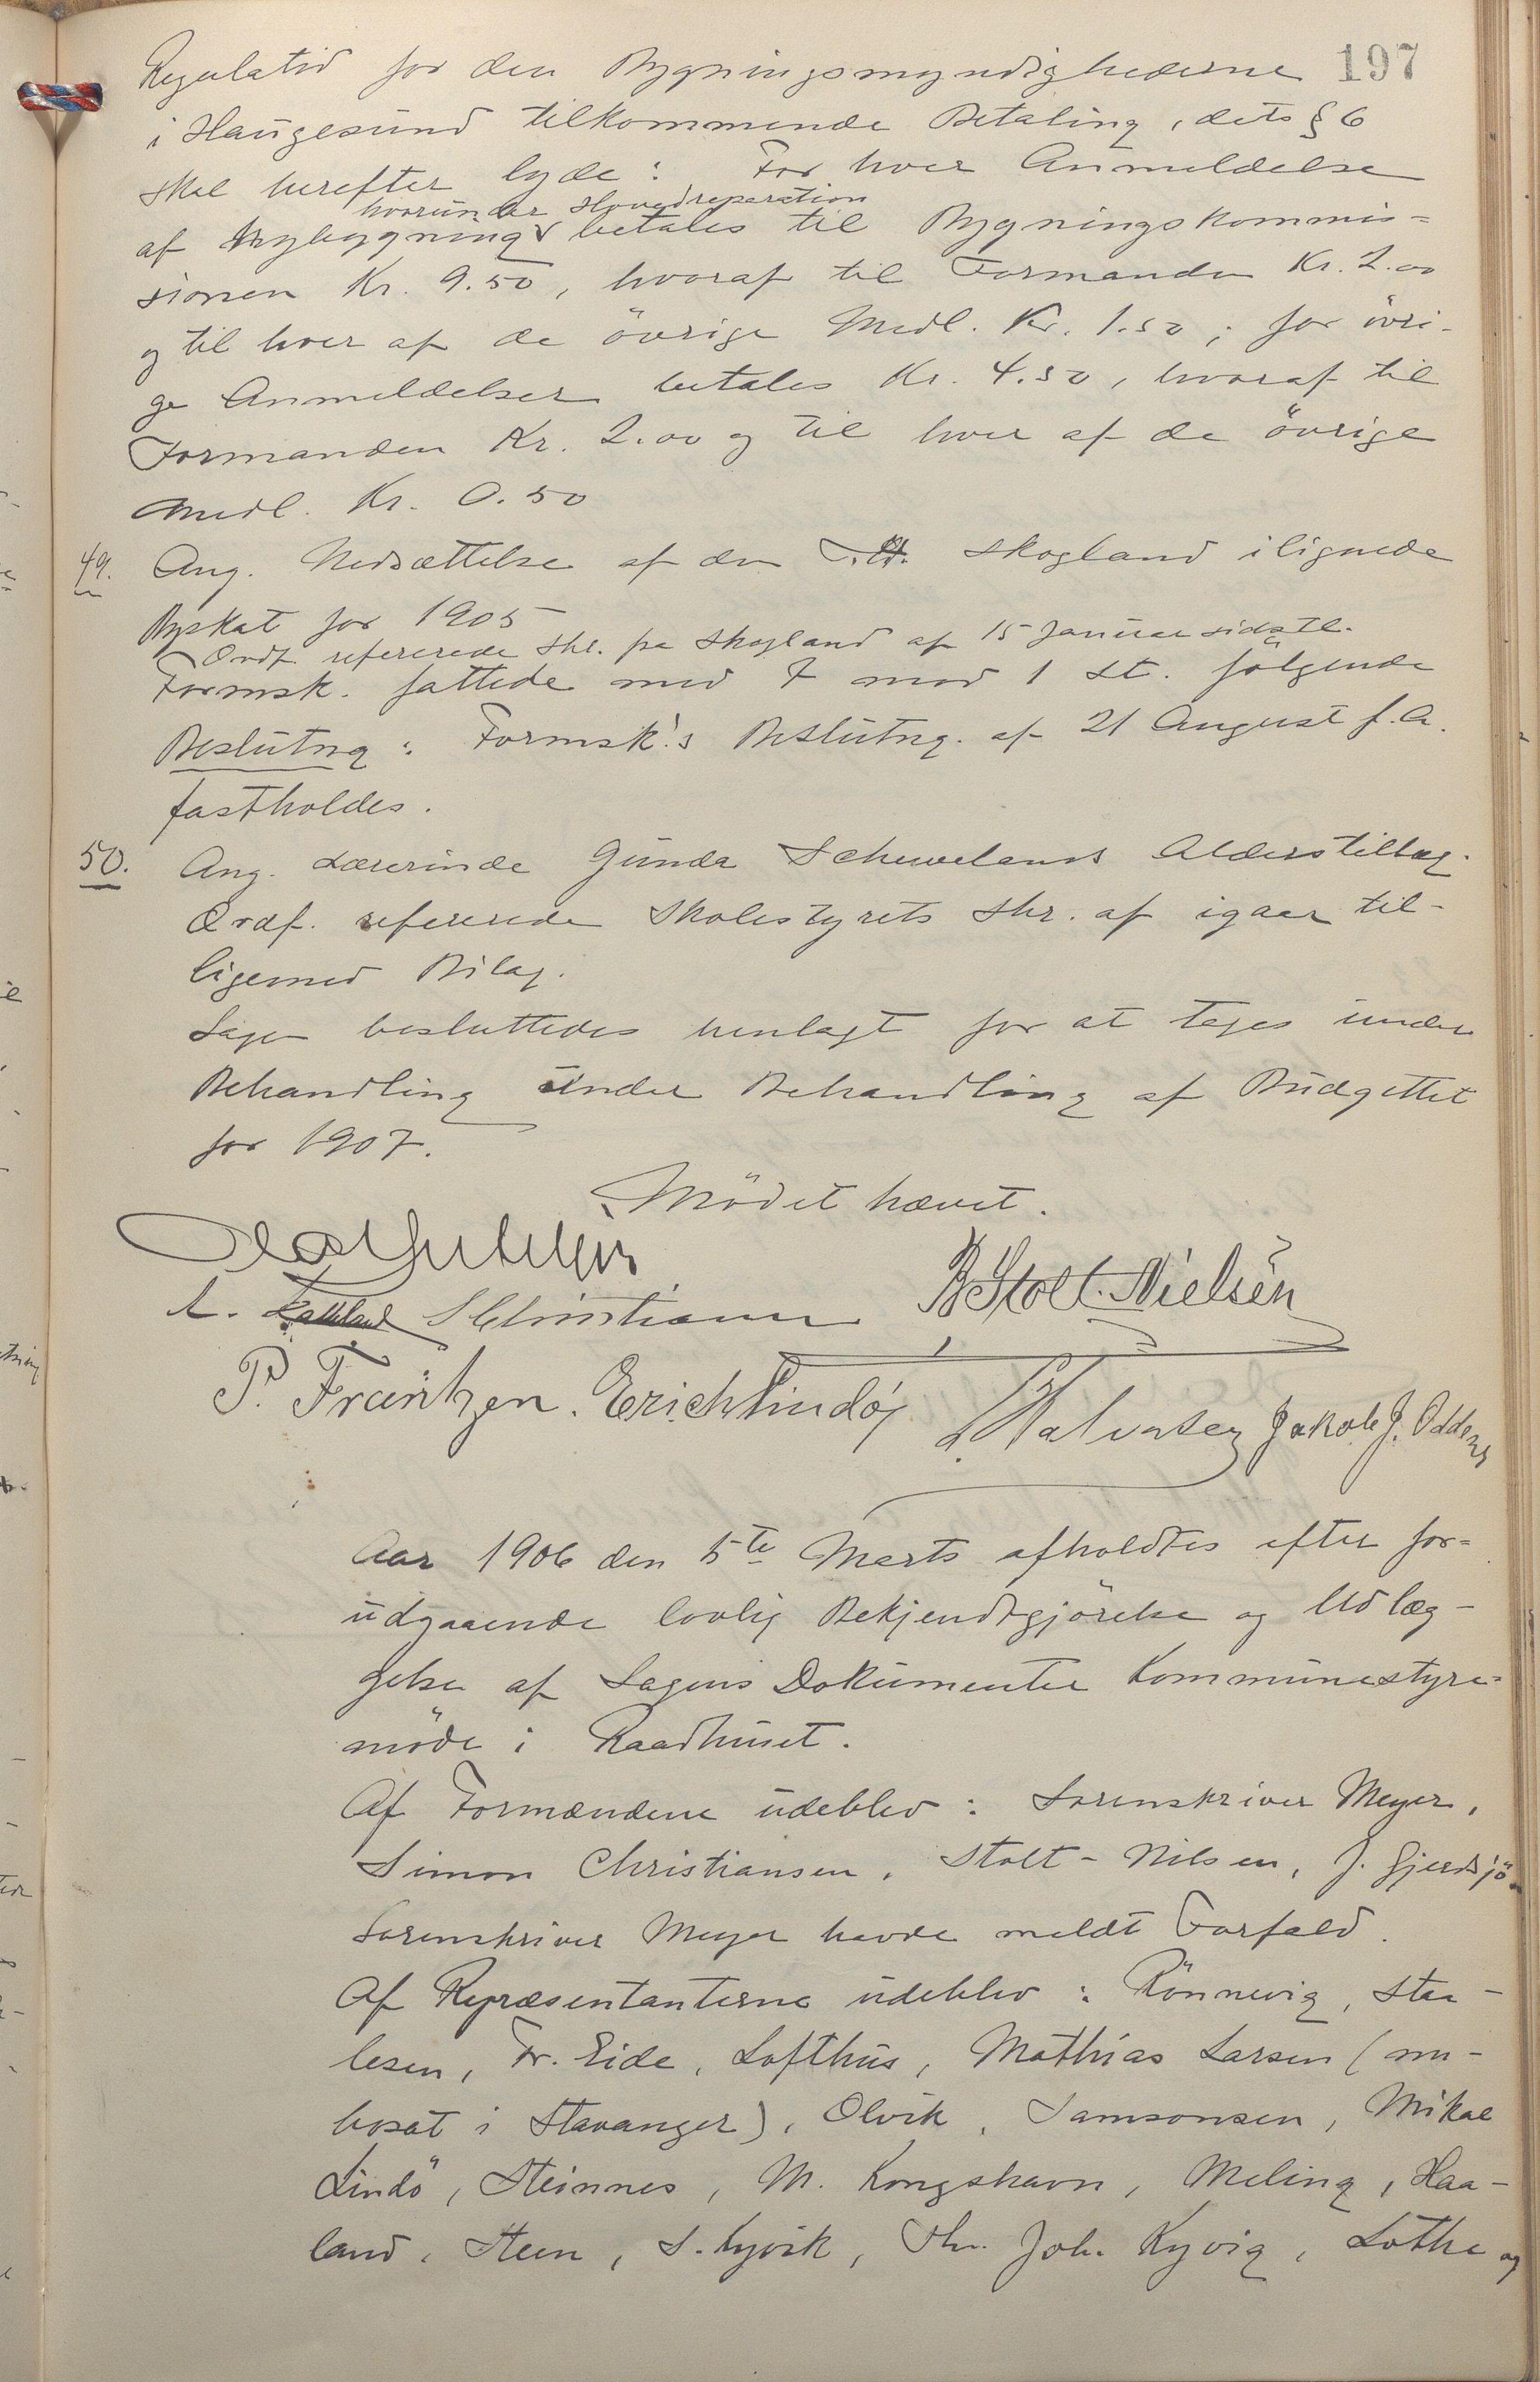 197
Regulativ for den Bygningsmyndighederne
i Haugesund tilkommende Betaling, dets § 6
skal herefter lyde: For hver Anmeldelse
hvorunder Hovedreparation
af Nybygning betales til Bygningskommis=
sionen Kr. 9.50, hvoraf til Formanden Kr. 2.00
og til hver af de övrige Medl. Kr. 1.50; for övri-
ge Anmeldelser betales Kr. 4.50, hvoraf til
Formanden Kr. 2.00 og til hver af de övrige
Medl. Kr. 0.50
49. Ang. Nedsættelse af den Skogland ilignede
Byskat for 1905
Ordf. refererede Skr. fra Skogland af 15 Januar sidstl.
Formsk. fattede med 7 mod 1 St. fölgende
Beslutng: Formsk.'s Beslutng. af 21 August f.A.
fastholdes.
50. Ang. Lærerinde Gunda Alderstillæg.
Ordf. refererede Skolestyrets Skr. af igaar til-
ligemed Bilag.
Sagen besluttedes henlagt for at tages under
Behandling under Behandling af Budgettet
for 1907.
Mödet hævet.
S Christiansen B Stolt-Nielsen
P. Frantzen. Erich Lindøy Halvorsen Jakob J. Oddens
Aar 1906 den 5te Marts afholdtes efter for=
udgaaende lovlig Bekjendtgjörelse og Udlæg-
gelse af Sagens Dokumenter Kommunestyre=
möde i Raadhuset.
Af Formændene udeblev: Sorenskriver Meyer,
Simon Christiansen, Stolt-Nilsen, J. Gjerdsjö.
Sorenskriver Meyer havde meldt Forfald.
Af Repræsentanterne udeblev: Rönnevig, Staa-
lesen, Fr. Eide, Lofthus, Mathias Larsen (nu-
bosat i Stavanger), Olvik, Samsonsen, Mikal
Lindö, Steinnes, M. Kongshavn, Meling, Haa-
land, Steen, S. Kyvik, Joh. Kyvig, Lothe og